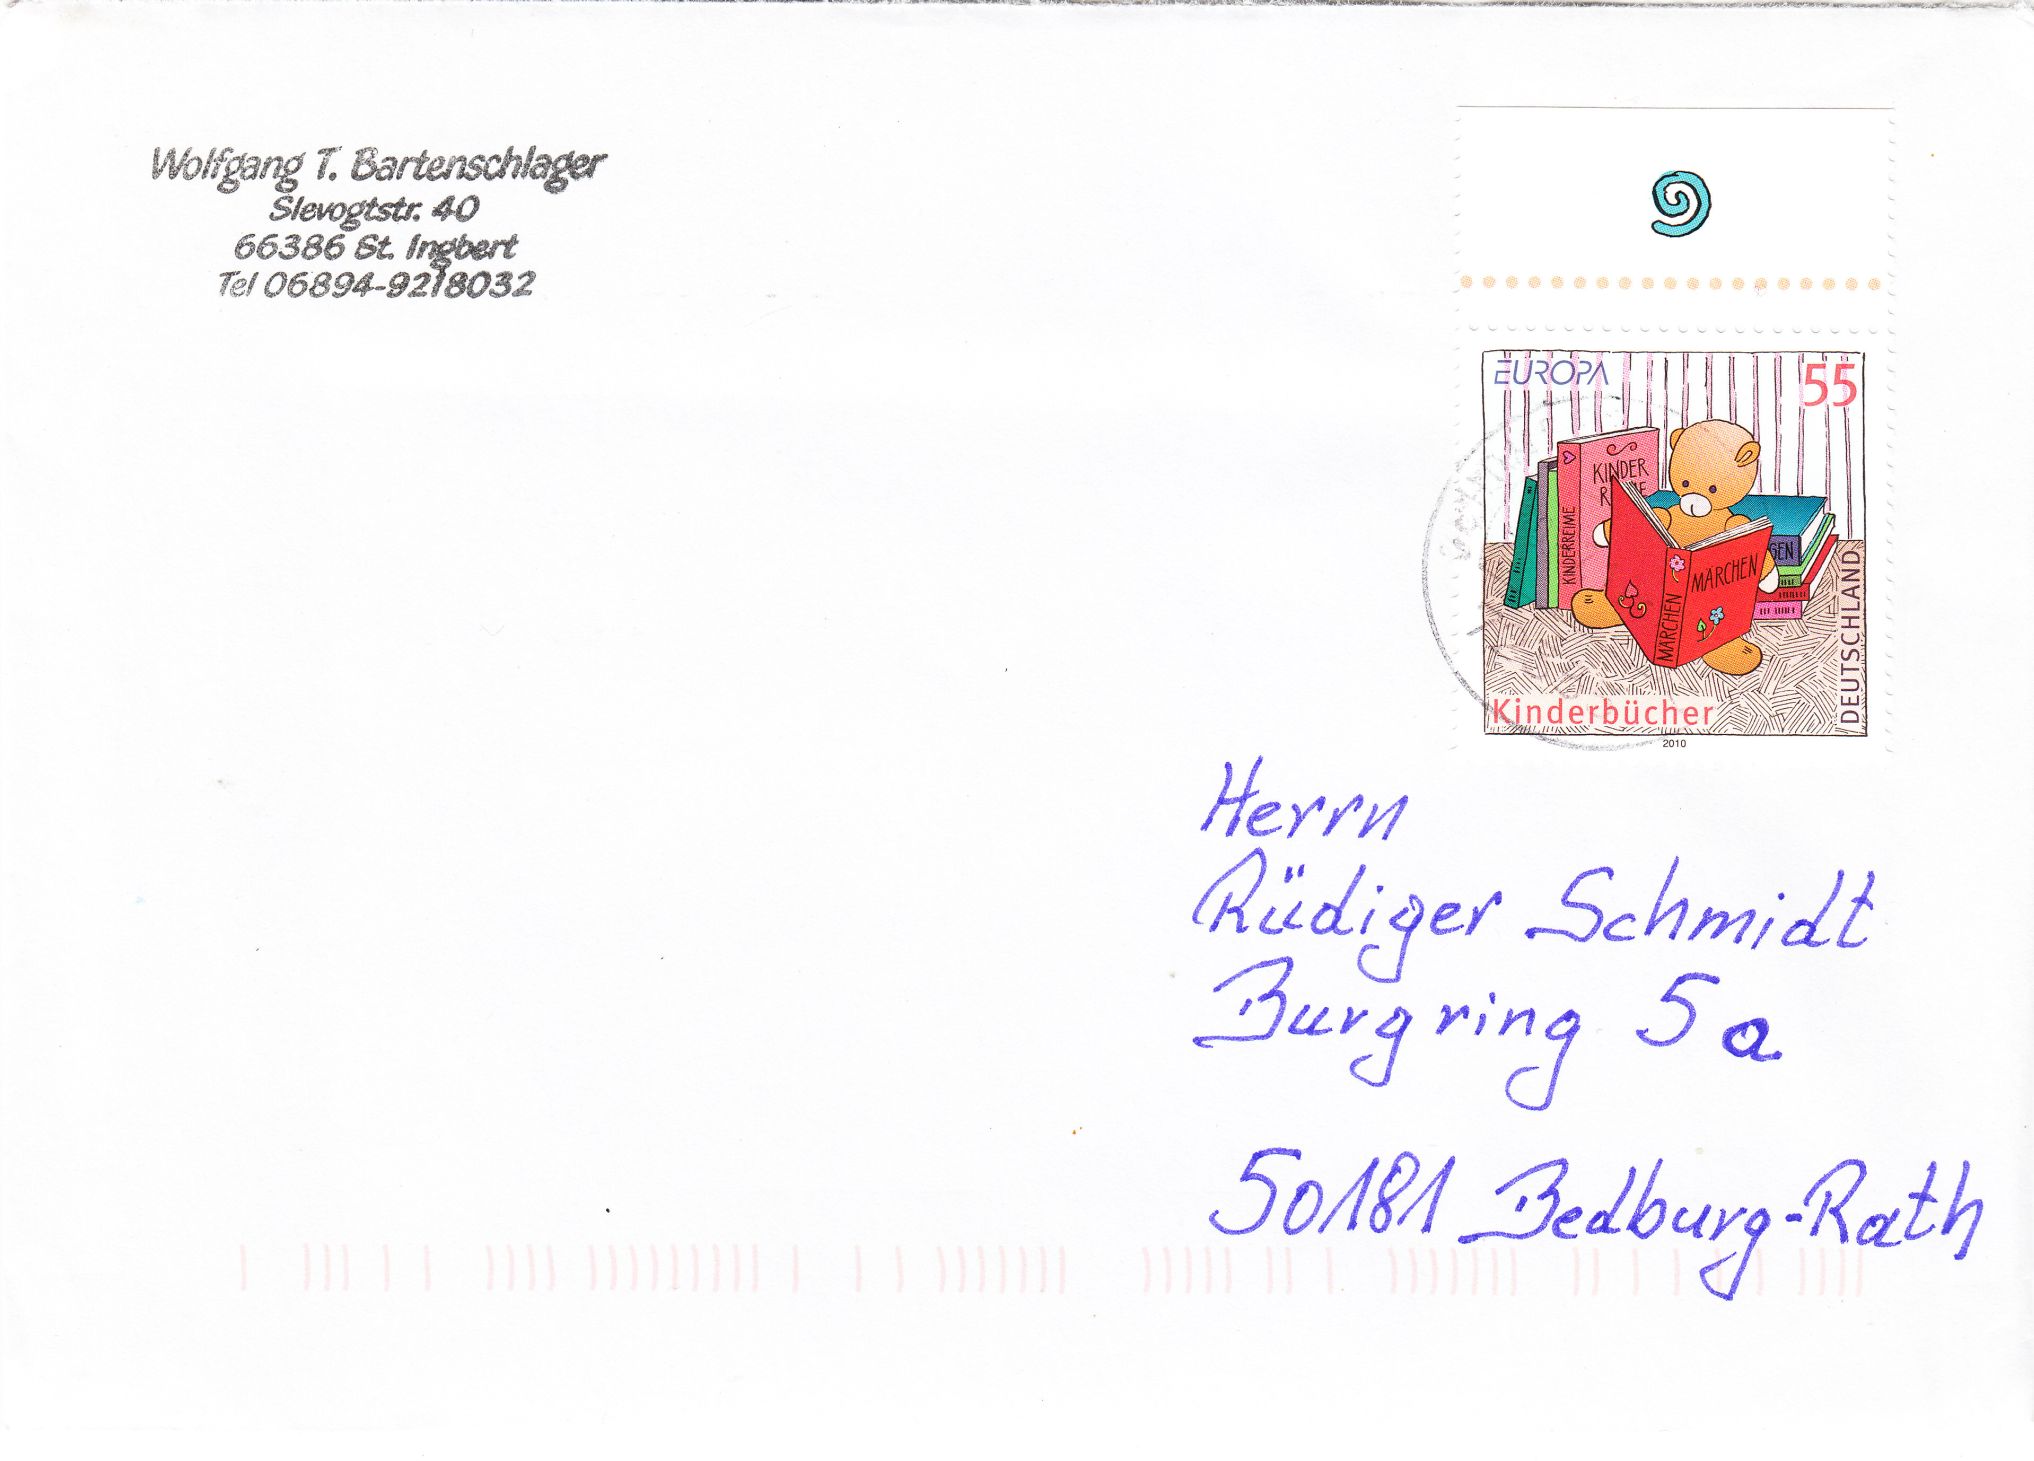 Wolfgang T. Bartenschlager
Slevogtstr. 40
66386 St. Ingbert
Tel 06894-9218032
EUROPA
55
KINDER
KINDERREIME
GEN
MÄRCHEN
MÄRCHEN
DEUTSCHLAND
Kinderbücher
2010
Herrn
Rüdiger Schmidt
Burgring 5a
50181 Bedburg-Rath